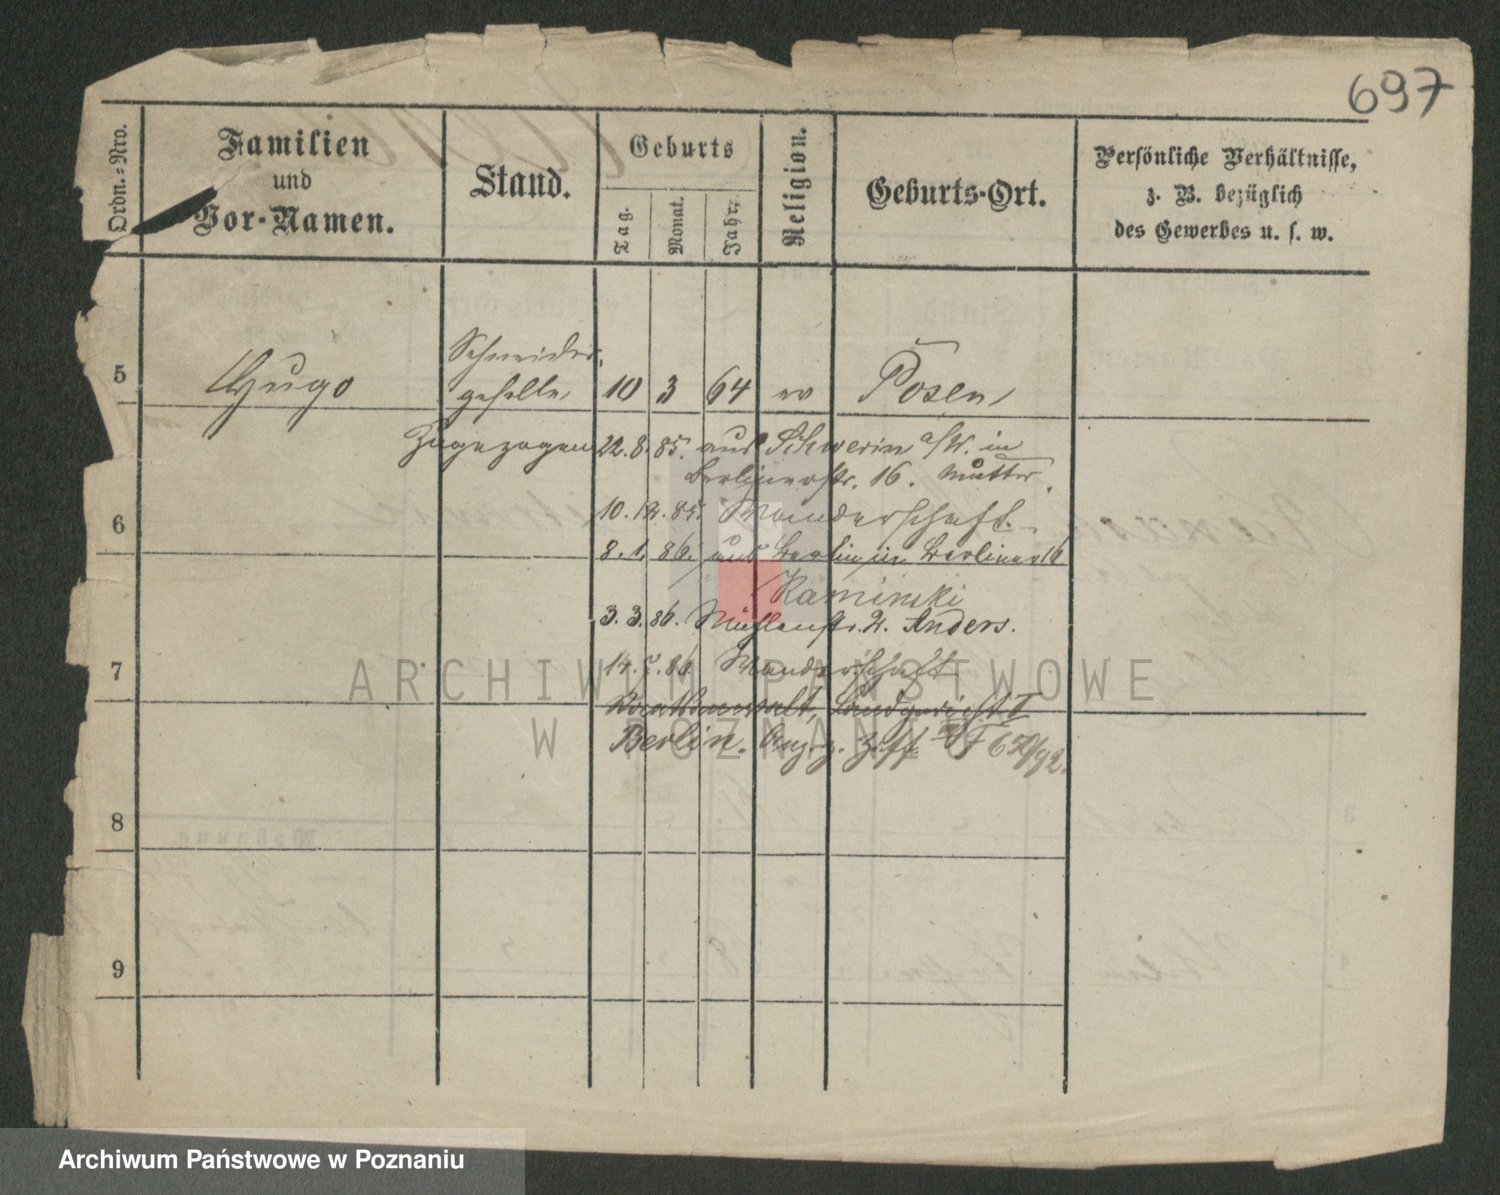 697
Ordn.-Nro.
Familien
und
Vor-Namen.
Stand.
Geburts
Tag.
Monat.
Jahr.
Religion.
Geburts-Ort.
Persönliche Verhältnisse,
z. B. bezüglich
des Gewerbes u. s. w.
Schneider-
5 Hugo geselle 10 3 64 ev Posen
Zugezogen 22.8.85. aus Schwerin a/W. in
Berlinerstr. 16. Mutter.
6
10.12.85. Wanderschaft.
8.1.86. aus Berlin in Berliner 16
Kaminski
3.3.86. Mühlenstr. 2. Anders.
7
14.7.86 Wanderschaft
Staatsanwalt, Landgericht I
Berlin.
8
9
ARCHIWUM PAŃSTWOWE
W POZNANIU
Archiwum Państwowe w Poznaniu